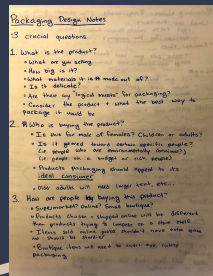 Packaging Design Notes
-3 crucial questions
1. What is the product?
• What are you selling
• How big is it?
• What materials is it made out of?
• Is it delicate?
• Are there any "logical musts" for packaging?
• Consider the product + what the best way to
package it would be
2. Who is buying the product?
• Is this for male or females? Children or adults?
• Is it geared toward certain specific people?
(ie. people who are environmentally conscious?)
(ie people on a budget or rich people)
• Products packaging should appeal to its
ideal consumer
• Older adults will need larger text, etc...
3. How are people buying this product?
• Supermarket? Online? Small boutique?
• Products chosen + shipped online will be different
than products trying to compete on a store shelf
• Items sold online should have extra
should be sturdy
• Boutique items will need to
packaging